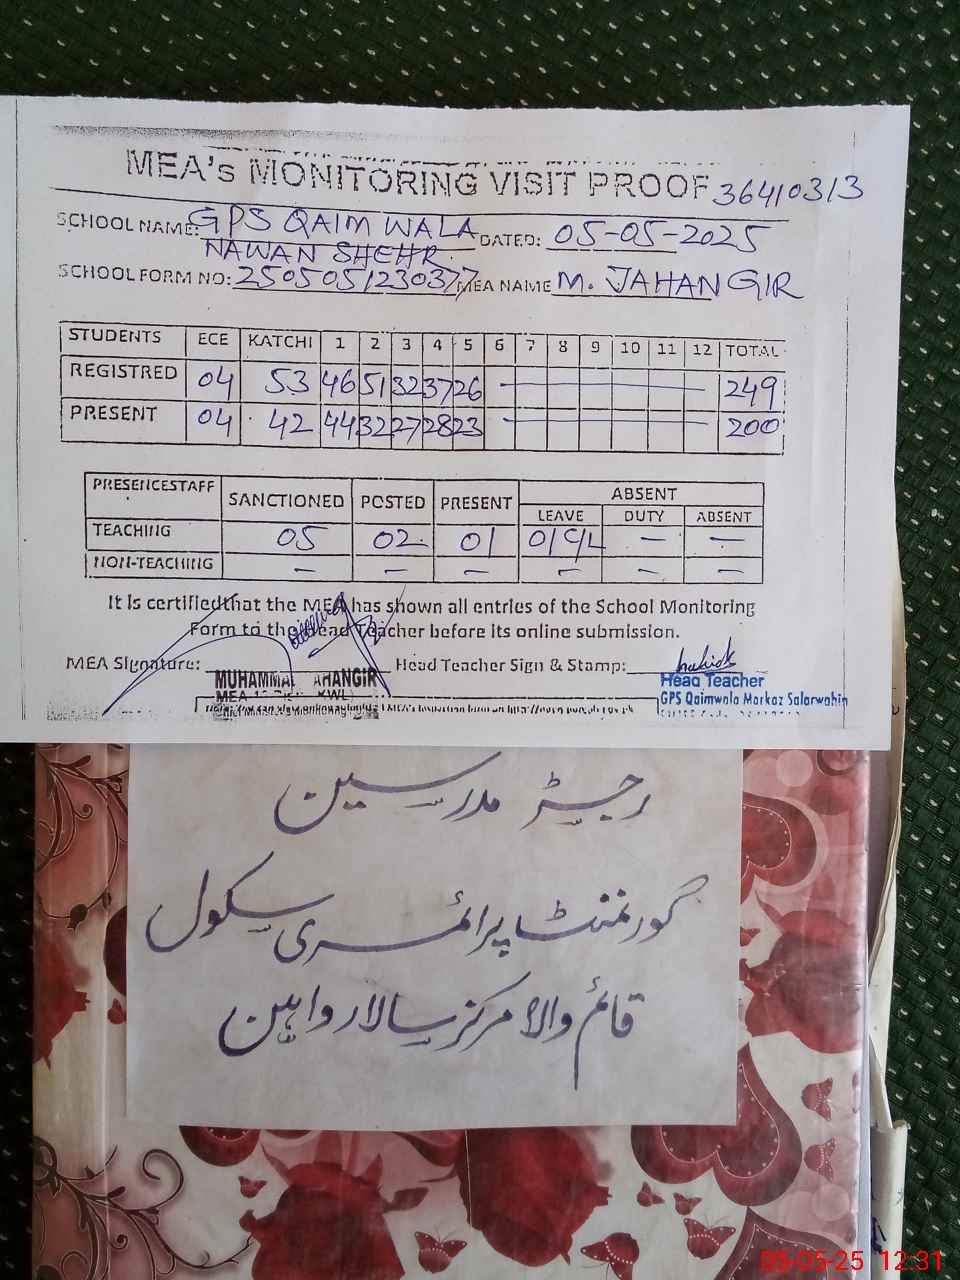 MEA's MONITORING VISIT PROOF 36410313
SCHOOL NAME: GPS QAIM WALA DATED: 05-05-2025
NAWAN SHEHR
SCHOOL FORM NO: 2505051230377 MEA NAME M. JAHANGIR
STUDENTS ECE KATCHI 1 2 3 4 5 6 7 8 9 10 11 12 TOTAL
REGISTRED 04 53 46 51 32 37 26 249
PRESENT 04 42 44 32 27 28 23 200
PRESENCESTAFF SANCTIONED POSTED PRESENT ABSENT
LEAVE DUTY ABSENT
TEACHING 05 02 01 01CL — —
NON-TEACHING – – – – – –
It is certified that the MEA has shown all entries of the School Monitoring
Form to the Head Teacher before its online submission.
MEA Signature: Head Teacher Sign & Stamp:
MUHAMMAD JAHANGIR Head Teacher
GPS Qaimwala Markaz Salarwahin
رجسٹر مدرسین
گورنمنٹ پرائمری سکول
قائم والا مرکز سالارواہین
05-05-25 12:31